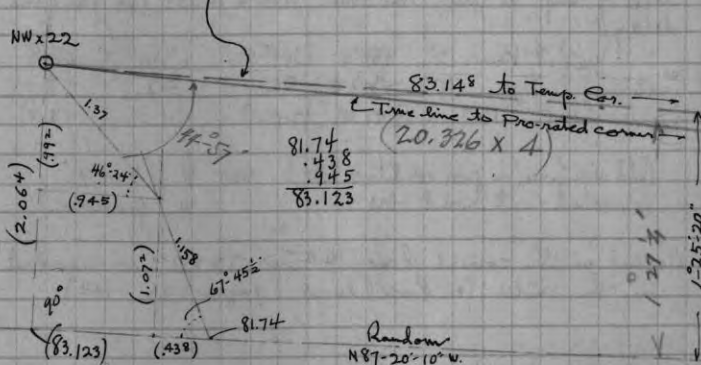 NW x 22
83.14⁸ to Temp. Cor.
True line to Pro-rated corner
(20.326 x 4)
1.37
44°-57
(.99²)
(2.064)
46°-24'
(.945)
81.74
.438
.945
83.123
1.158
(1.07²)
67°-45½'
90°
(83.123)
(.438)
81.74
Random
N 87-20'-10" W.
1° 27 ½'
1°-25'-20"